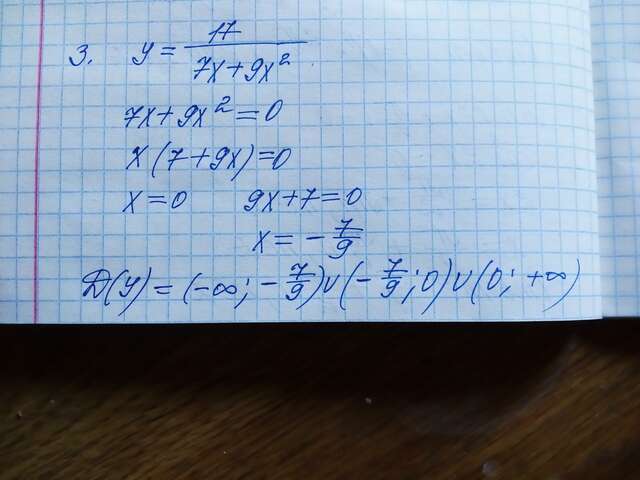 3. y = 17 / (7x+9x²)
7x+9x²=0
x(7+9x)=0
x=0 9x+7=0
x = -7/9
D(y) = (-∞; -7/9)∪(-7/9; 0)∪(0; +∞)